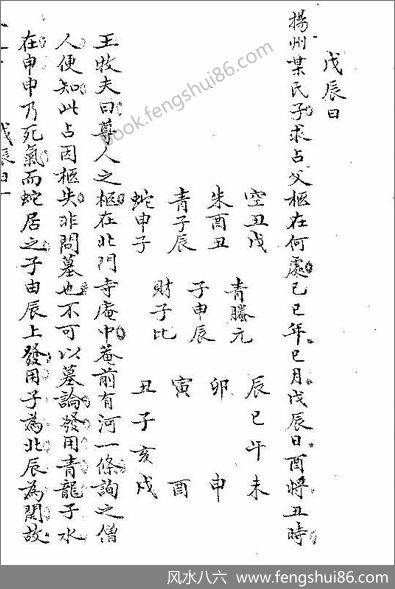 戊辰日
揚州某氏子求占父柩在何處己巳年巳月戊辰日酉將丑時
空丑戌
朱酉丑
青子辰
蛇申子
青螣元
子申辰
財子比
辰巳午未
卯 申
寅 酉
丑子亥戌
王牧夫曰尊人之柩在北門寺庵中菴前有河一條詢之僧
人便知此占因柩失非問墓也不可以墓論發用青龍子水
在申申乃死氣而蛇居之子由辰上發用子為北辰為関故
戊辰日
book.fengshui86.com
风水八六 www.fengshui86.com